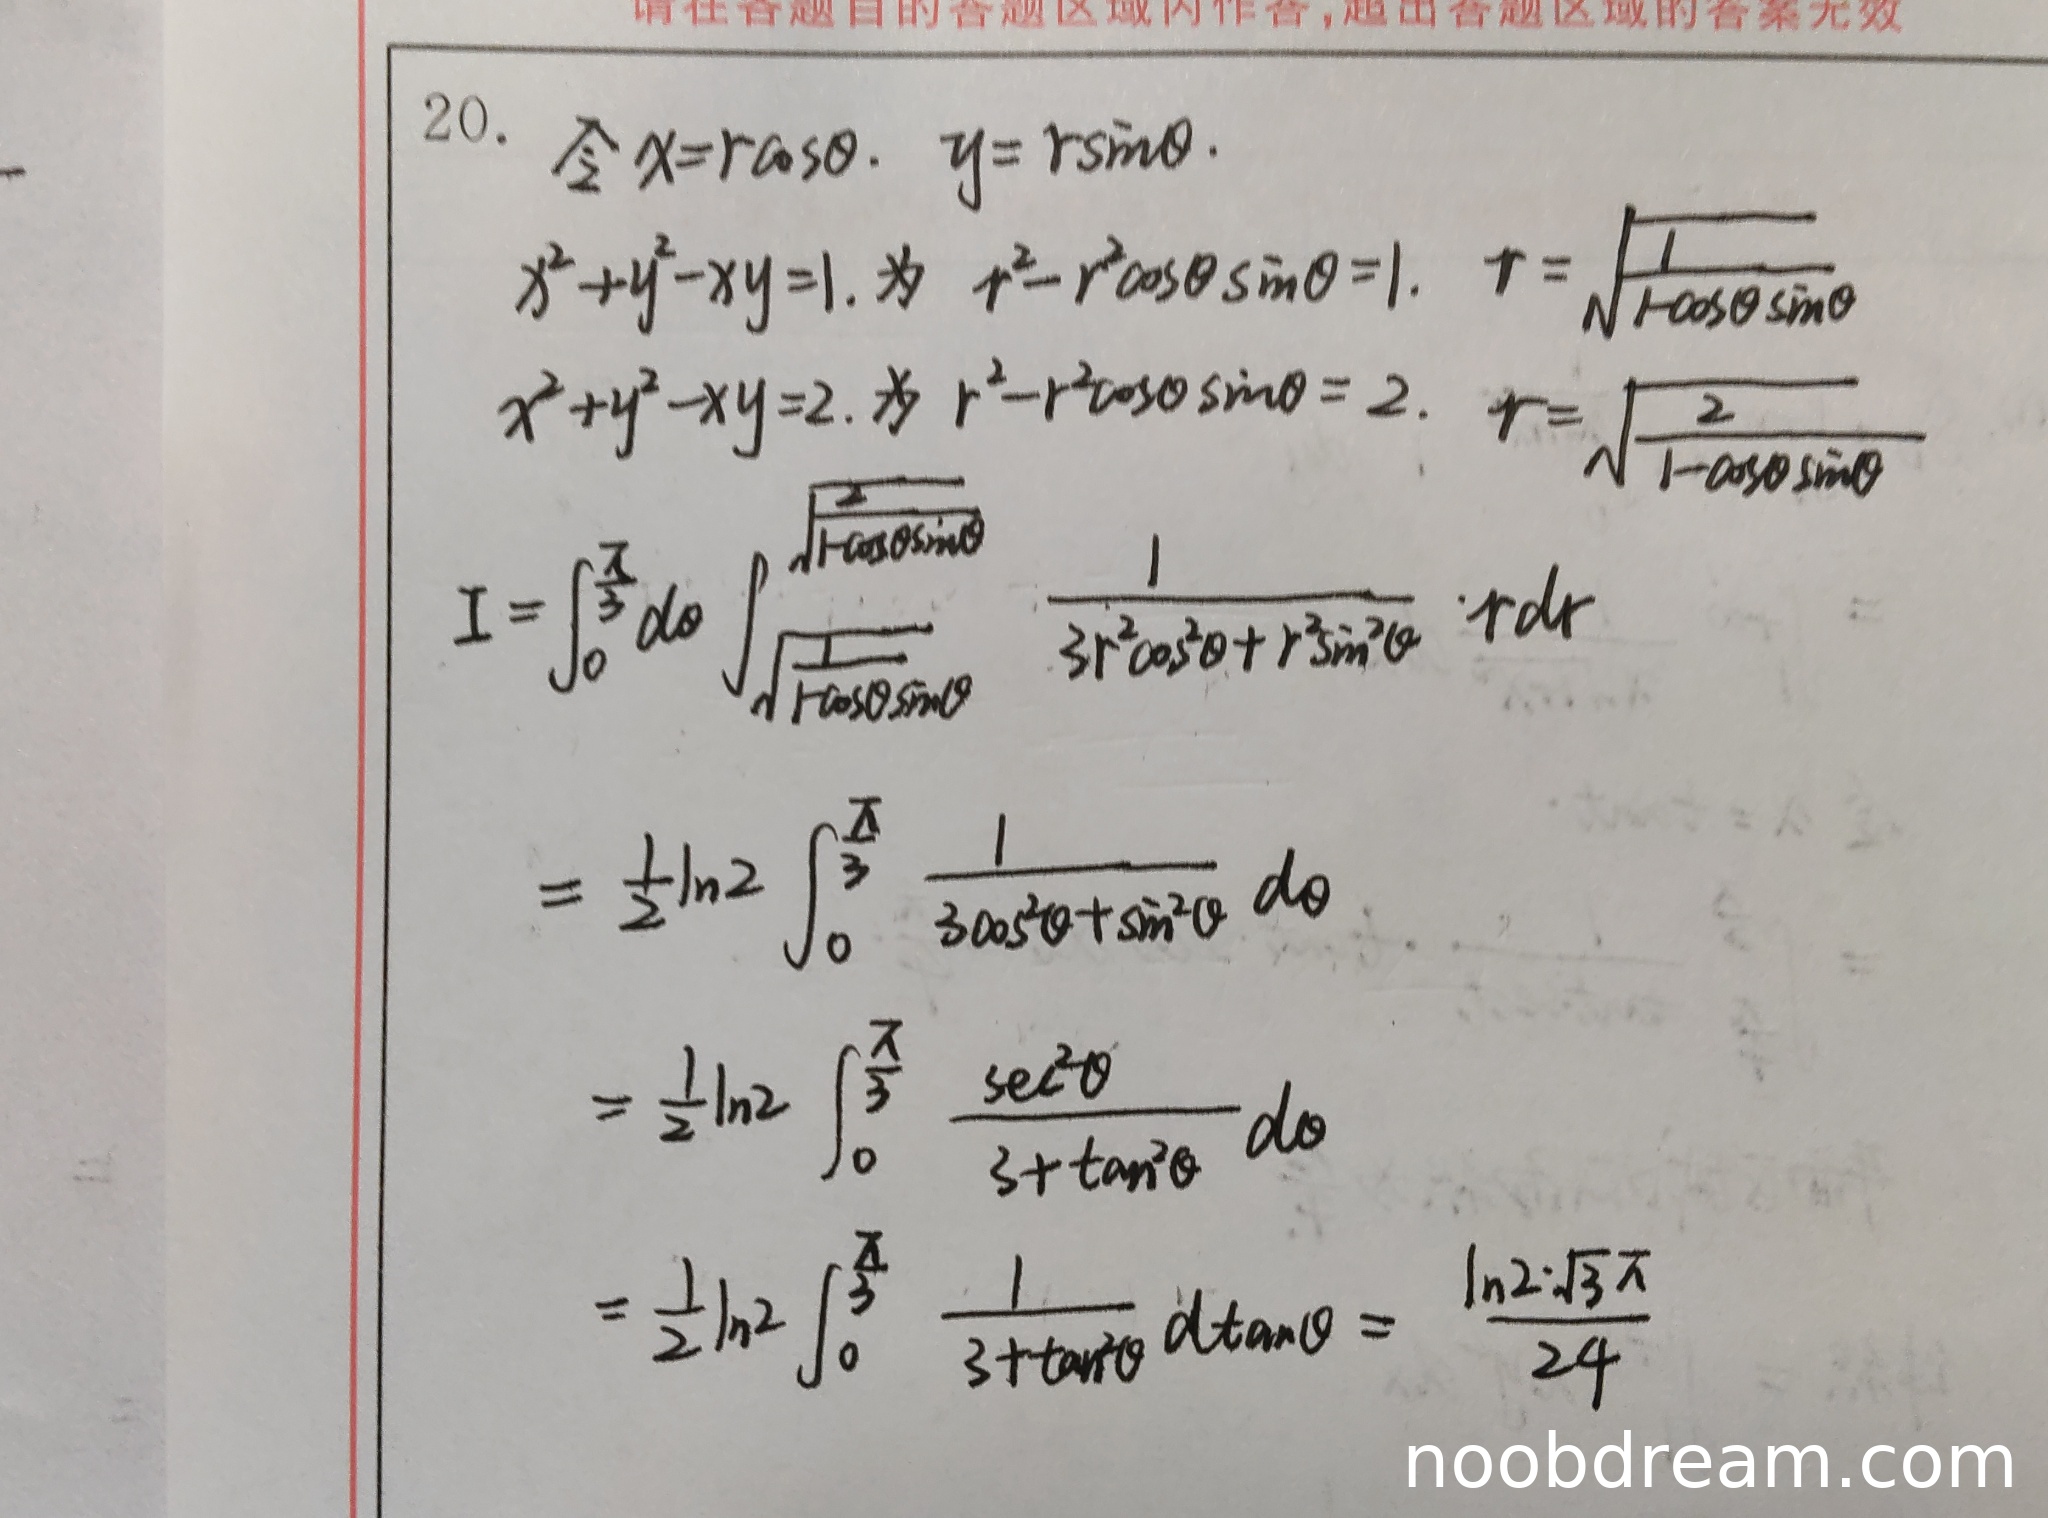 请在各题目的答题区域内作答,超出答题区域的答案无效
20. 令 x=rcosθ. y=rsinθ.
x²+y²-xy=1. 为 r²-r²cosθsinθ=1. r=√(1/(1-cosθsinθ))
x²+y²-xy=2. 为 r²-r²cosθsinθ=2. r=√(2/(1-cosθsinθ))
I=∫₀^(π/3) dθ ∫_(√(1/(1-cosθsinθ)))^(√(2/(1-cosθsinθ))) 1/(3r²cos²θ+r²sin²θ) ·rdr
= 1/2 ln2 ∫₀^(π/3) 1/(3cos²θ+sin²θ) dθ
= 1/2 ln2 ∫₀^(π/3) sec²θ/(3+tan²θ) dθ
= 1/2 ln2 ∫₀^(π/3) 1/(3+tan²θ) dtanθ = (ln2·√3π)/24
noobdream.com